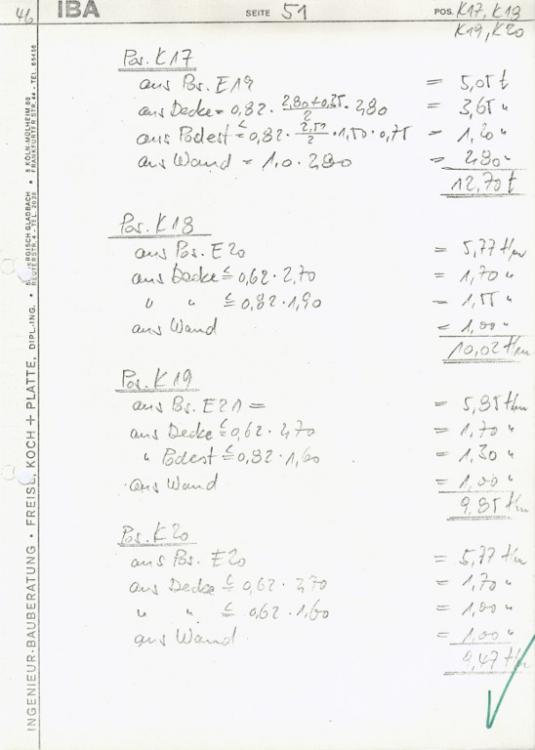 46 IBA SEITE 51 POS. K17, K18
K19, K20
Pos. K17
aus Pos. E19 = 5,05 t
aus Decke = 0,82 · (2,80+0,35)/2 · 2,80 = 3,65 "
aus Podest ≤ 0,82 · 2,51/2 · 1,50 · 0,75 = 1,20 "
aus Wand = 1,0 · 2,80 = 2,80 "
12,70 t
Pos. K18
aus Pos. E20 = 5,77 t/m
aus Decke ≤ 0,62 · 2,70 = 1,70 "
" " ≤ 0,82 · 1,90 = 1,55 "
aus Wand = 1,00 "
10,02 t/m
Pos. K19
aus Pos. E21 = = 5,85 t/m
aus Decke ≤ 0,62 · 2,70 = 1,70 "
" Podest ≤ 0,82 · 1,60 = 1,30 "
aus Wand = 1,00 "
9,85 t/m
Pos. K20
aus Pos. E20 = 5,77 t/m
aus Decke ≤ 0,62 · 2,70 = 1,70 "
" " ≤ 0,62 · 1,60 = 1,00 "
aus Wand = 1,00 "
9,47 t/m
INGENIEUR-BAUBERATUNG • FREISE, KOCH + PLATTE, DIPL.-ING. •
GISCH GLADBACH • 5 KÖLN-MÜLHEIM 80
FRANKFURTER STR. 44 - TEL.